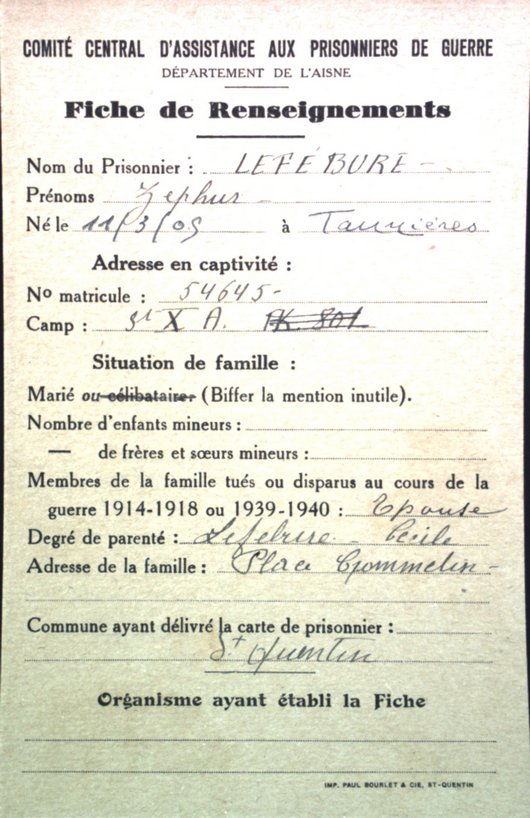 COMITÉ CENTRAL D'ASSISTANCE AUX PRISONNIERS DE GUERRE
DÉPARTEMENT DE L'AISNE
Fiche de Renseignements
Nom du Prisonnier : LEFÉBURE -
Prénoms Zéphir -
Né le 11/3/09 à
Adresse en captivité :
No matricule : 54645-
Camp : St X A.
Situation de famille :
Marié ou célibataire (Biffer la mention inutile).
Nombre d'enfants mineurs :
— de frères et sœurs mineurs :
Membres de la famille tués ou disparus au cours de la
guerre 1914-1918 ou 1939-1940 : Epouse
Degré de parenté : Lefebure - Cécile
Adresse de la famille : Place Crommelin -
Commune ayant délivré la carte de prisonnier :
St Quentin
Organisme ayant établi la Fiche
IMP. PAUL BOURLET & CIE, ST-QUENTIN